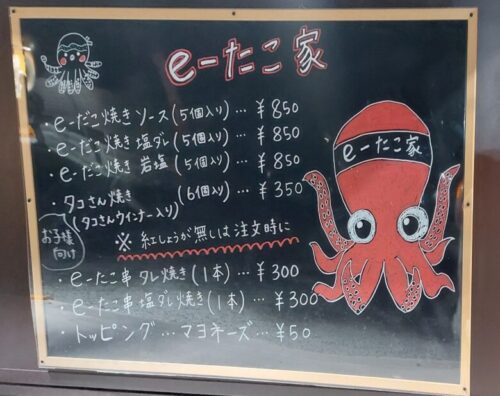 e-たこ家
・e-だこ焼きソース(5個入り)…¥850
・e-だこ焼き塩ダレ(5個入り)…¥850
・e-だこ焼き岩塩(5個入り)…¥850
・タコさん焼き(6個入り)…¥350
(タコさんウインナー入り)
お子様向け
※紅しょうが無しは注文時に
・e-たこ串タレ焼き(1本)…¥300
・e-たこ串塩ダレ焼き(1本)…¥300
・トッピング…マヨネーズ…¥50
e-たこ家